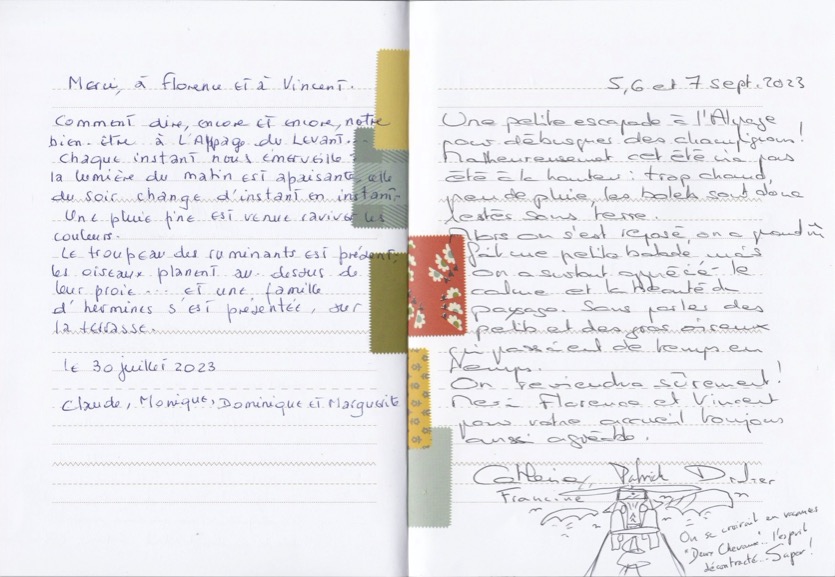 Merci, à Florence ET à Vincent.
Comment dire, encore ET encore, notre
bien-être à L'Appago du Levant...
Chaque instant nous émerveille :
la lumière du matin EST apaisante, celle
du soir change d'instant en instant.
Une pluie fine EST venue raviver les
couleurs.
Le troupeau des ruminants EST présent,
les oiseaux planent au-dessus de
leur proie... ET une famille
d'hermines s'EST présentée, sur
la terrasse.
Le 30 juillet 2023
Claude, Monique, Dominique ET Marguerite
5, 6 et 7 sept. 2023
Une petite escapade à l'Alpage
pour débusquer des champignons!
Malheureusement cet été n'a pas
été à la hauteur : trop chaud,
peu de pluie, les bolets sont donc
restés sous terre.
Alors on s'est reposé, on a quand m̂
fait une petite balade, mais
on a surtout apprécié le
calme et la beauté du
paysage. Sans parler des
petits et des gros oiseaux
qui passaient de temps en
temps.
On reviendra sûrement!
Merci Florence et Vincent
pour votre accueil toujours
aussi agréable.
Patrick Didier
Francine
On se croirait en vacances
"Deux Chevaux".. l'esprit
décontracté...Super!